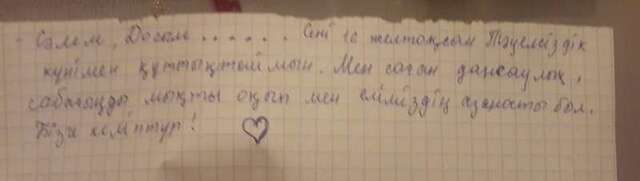 - Сәлем, Досым ...... Сені 16 желтоқсан Тәуелсіздік
күнімен құттықтаймын. Мен саған денсаулық,
сабағыңды мықты оқып мен еліміздің азаматы бол.
Бізге көп тұр!